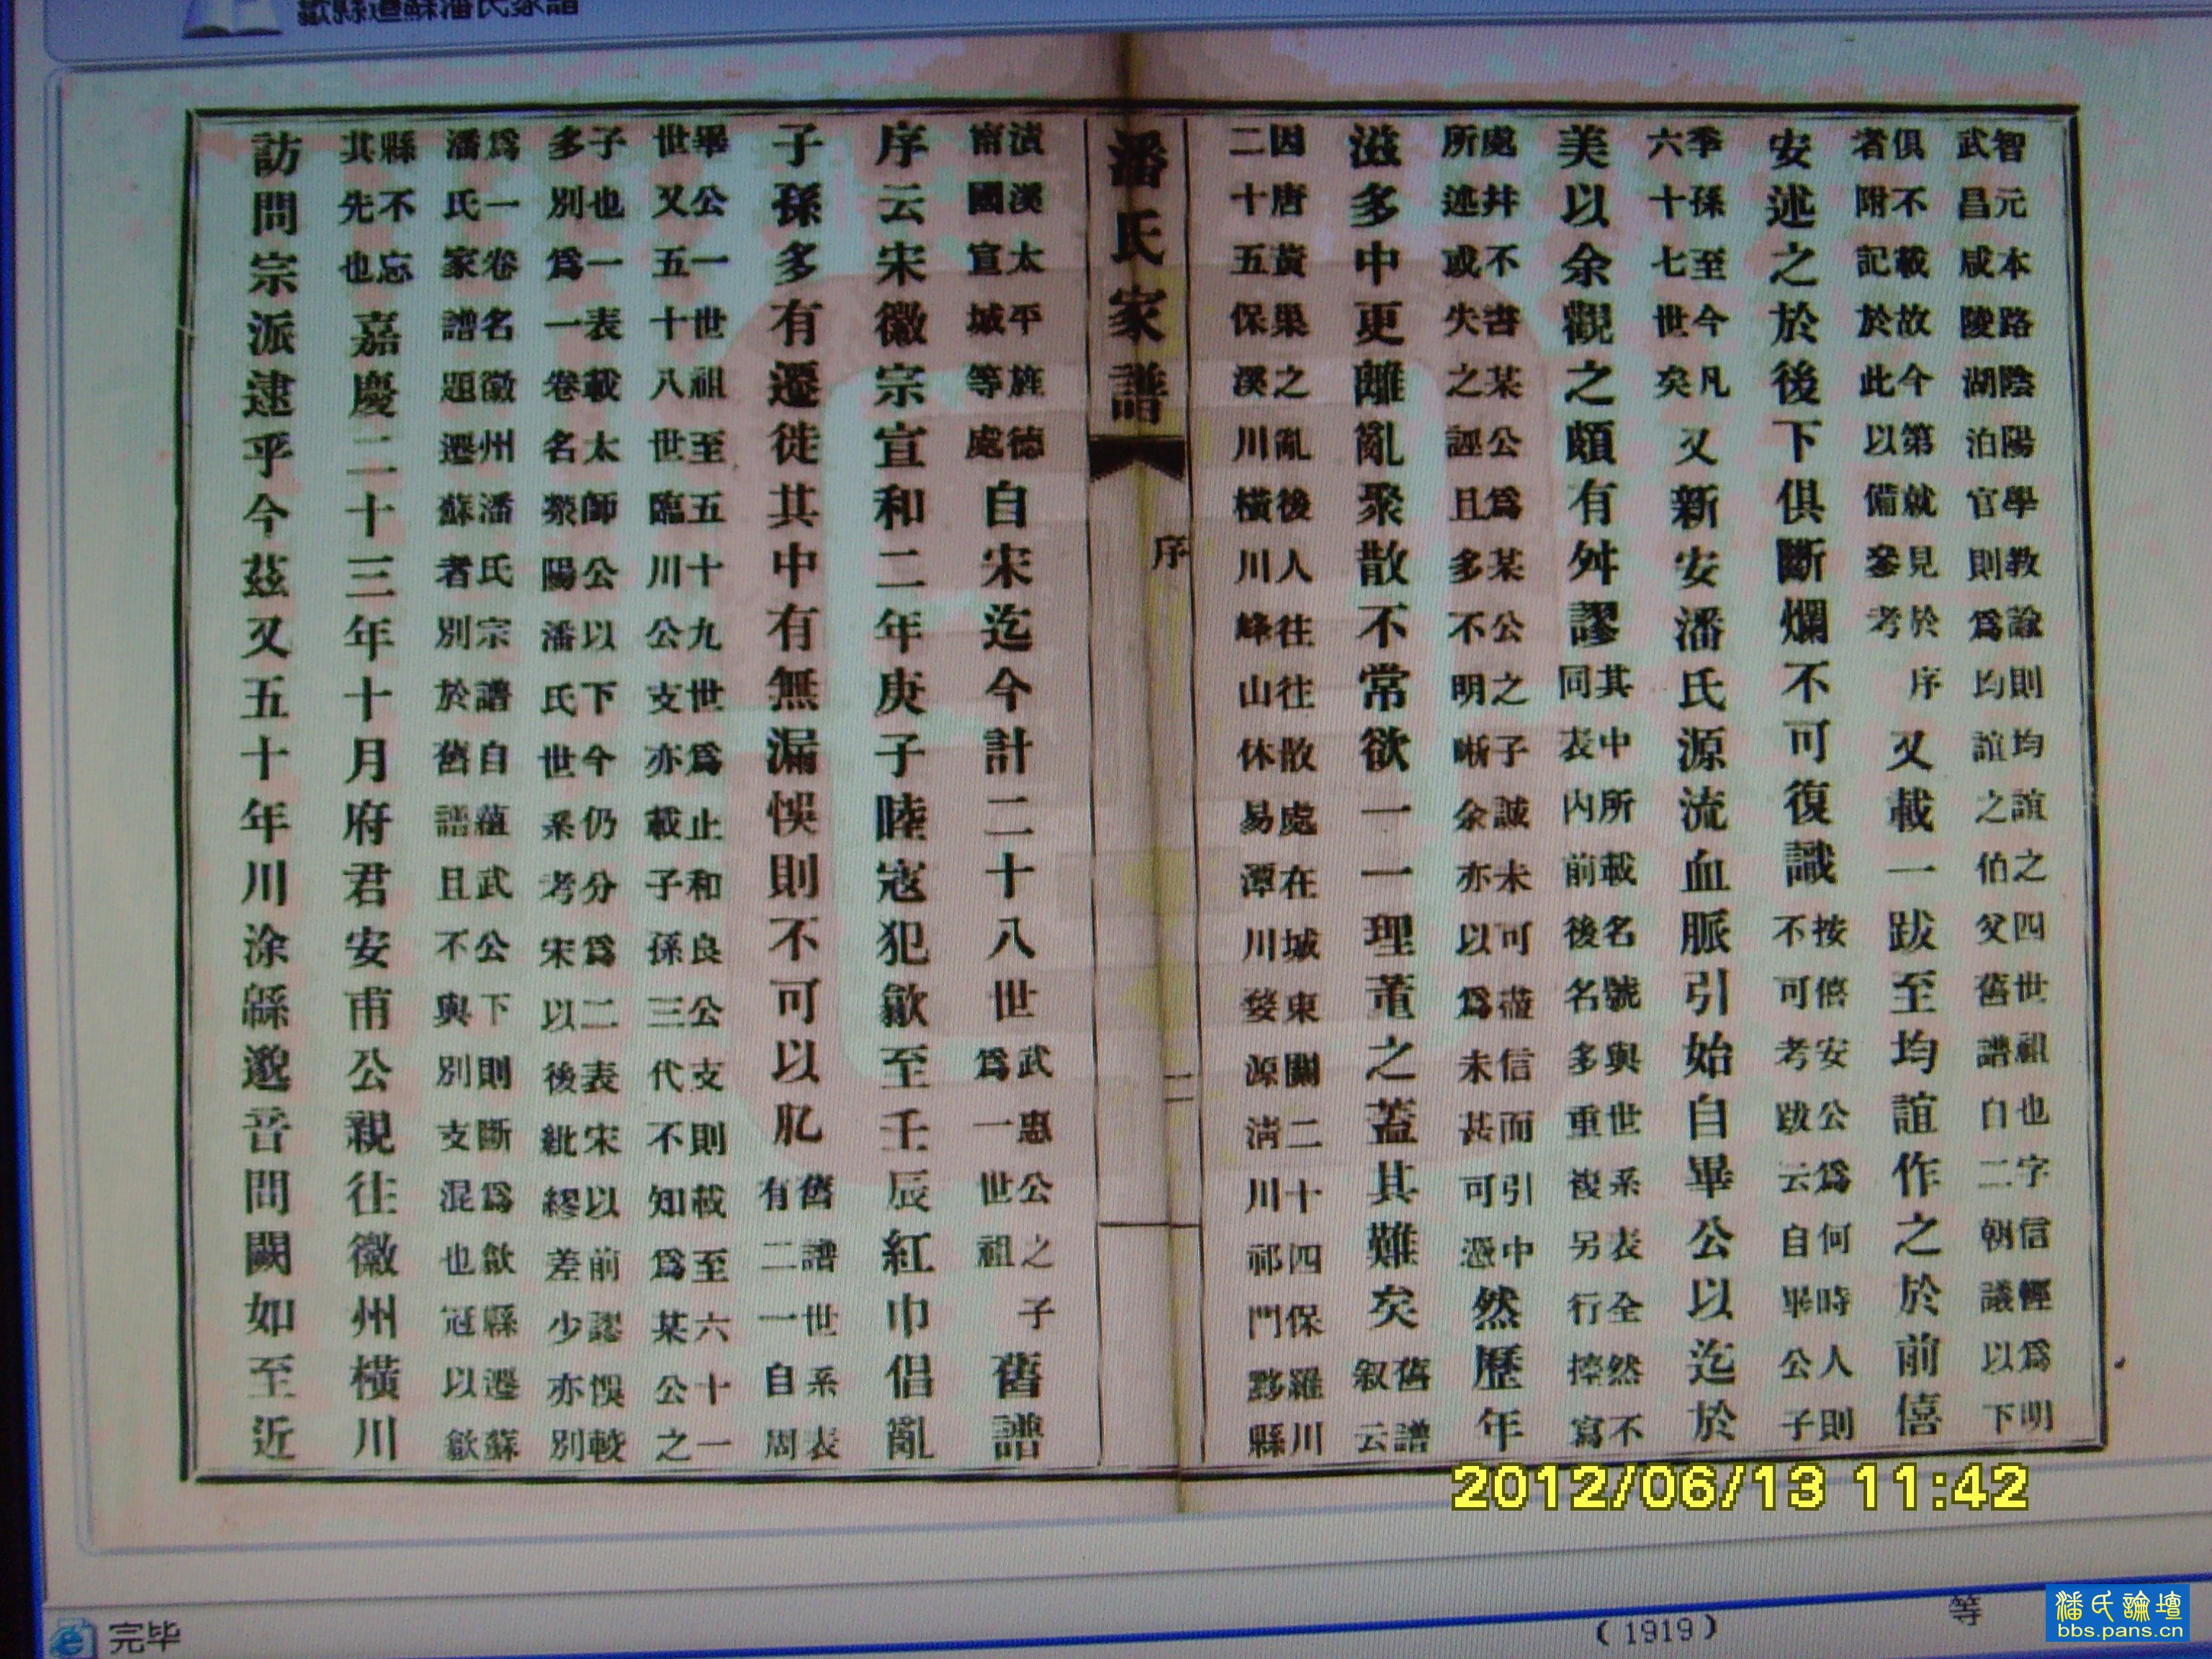 歙縣遷蘇潘氏家譜
智元本路陰陽學教諭則均誼之四世祖也字信輕為明
武昌咸陵湖泊官則為均誼之伯父舊譜自二朝議以下
俱不載故今第就見於
者附記於此以備參考
序又載一跋至均誼作之於前僖
安述之於後下俱斷爛不可復識
按僖安公為何時人則
不可考跋云自畢公子
季孫至今凡
六十七世矣
又新安潘氏源流血脈引始自畢公以迄於
美以余觀之頗有舛謬
其中所載名號與世系表全然不
同表內前後名多重複另行擰寫
處并不書某公為某公之子誠未可藎信而引中
所述或失之誣且多不明晰余亦以為未甚可憑
然歷年
滋多中更離亂聚散不常欲一一理董之蓋其難矣
舊譜
叙云
因唐黃巢之亂後人往往散處在城東關二十四保羅川
二十五保溪川橫川峰山休易潭川婺源淸川祁門黟縣
潘氏家譜
序
二
漢太平旌德
甯國宣城等處
自宋迄今計二十八世
武惠公之子
為一世祖
舊譜
序云宋徽宗宣和二年庚子睦寇犯歙至壬辰紅巾倡亂
子孫多有遷徙其中有無漏悞則不可以肊
舊譜世系表
有二一自周
畢公一世祖至五十九世為止和良公支則載至六十一
世又五十八世臨川公支亦載子孫三代不知為某公之
子也一表載太師公以下今仍分為二表宋以前認悞較
多別為一卷名滎陽潘氏世系考宋以後紕繆差少亦別
為一卷名徽州潘氏宗譜自蘊武公下則斷為歙縣遷蘇
潘氏家譜題遷蘇者別於舊譜且不與別支混也冠以歙
縣不忘
其先也
嘉慶二十三年十月府君安甫公親往徽州橫川
訪問宗派逮乎今茲又五十年川涂緜邈音問闕如至近
2012/06/13 11:42
完毕
(1919)
等
潘氏論壇
bbs.pans.cn